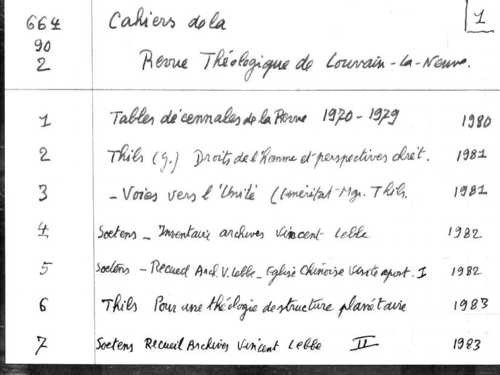 664 Cahiers de la 1
90
2 Revue Théologique de Louvain-la-Neuve.
1 Tables décennales de la Revue 1970-1979 1980
2 Thils (G.) Droits de l'homme et perspectives chrét. 1981
3 - Voies vers l'Unité ( Mgr. Thils. 1981
4 Soetens - Inventaire archives Vincent Lebbe 1982
5 Soetens - Recueil Arch. V. Lebbe - Eglise Chinoise Visite apost. I 1982
6 Thils Pour une théologie de structure planétaire 1983
7 Soetens Recueil Archives Vincent Lebbe II 1983